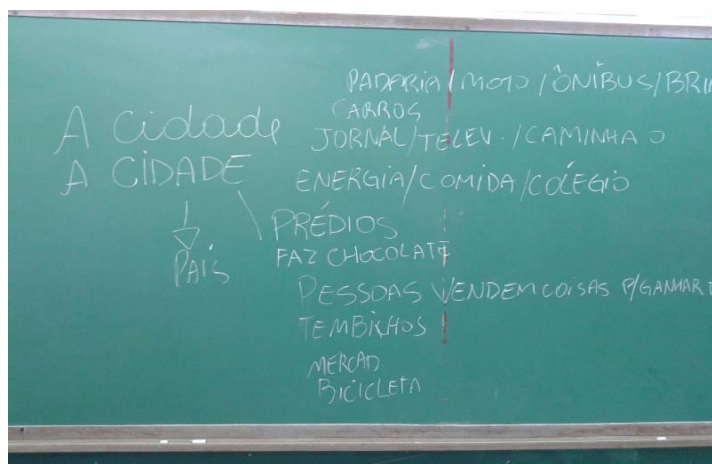 A Cidade
A CIDADE
PAÍS
PADARIA / MOTO / ÔNIBUS / BRI
CARROS
JORNAL / TELEV. / CAMINHAO
ENERGIA / COMIDA / COLÉGIO
PRÉDIOS
FAZ CHOCOLATE
PESSOAS VENDEM COISAS P/ GANHAR
TEM BICHOS
MERCAD.
BICICLETA